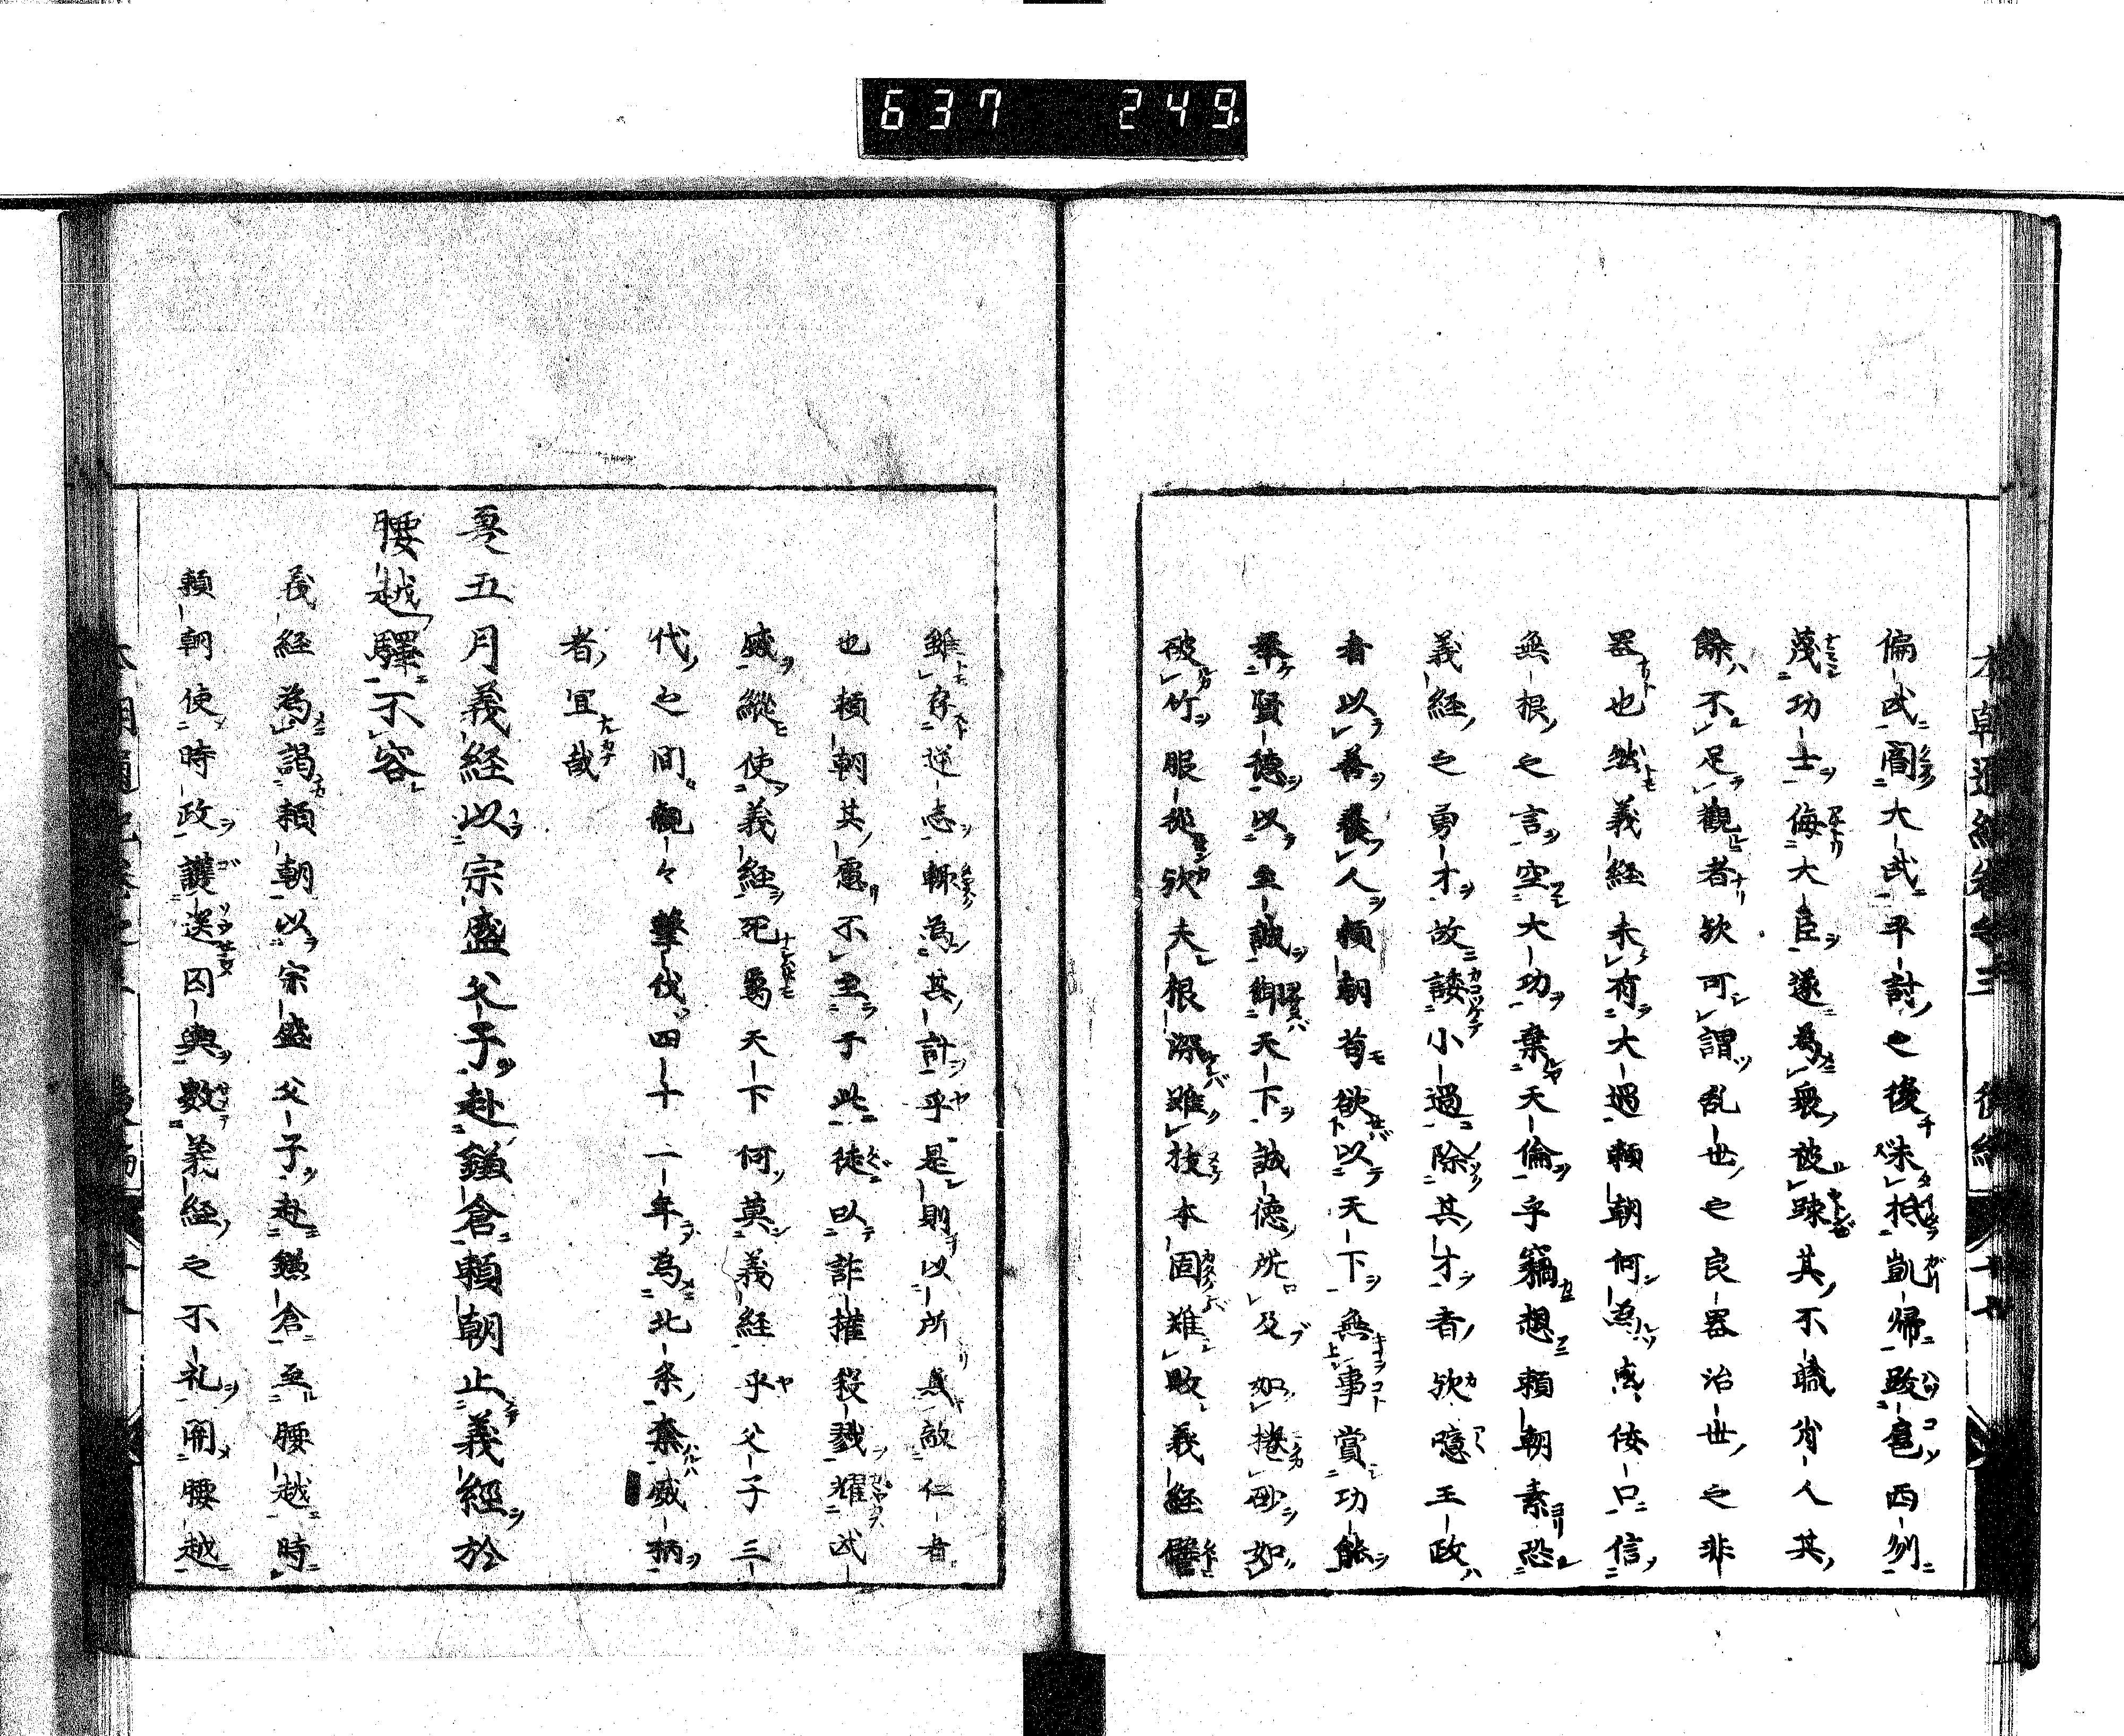 637 249
偏武閣大武平討之後未抵凱帰政邑西列
蔑功士侮大臣遂為衆被踈其不識肖人其
餘不足観者欤可謂乱世之良器治世之非
器也然義経未有大過頼朝何為惑佞口信
無根之言空大功棄天倫乎竊想頼朝素恐
義経之勇才故諉小過除其才者欤噫王政
者以善養人頼朝苟欲以天下無事賞功能
挙賢徳以至誠御天下誠徳所及如捲砂如
破竹服従欤夫根深難抜本固難敗義経
雖存逆志輙為其計乎是則以所無敵仁者
也頼朝其慮不至于此徒以詐権殺戮耀武
威縦使義経死焉天下何莫義経乎父子三
代之間親々撃伐四十二年為北条奪威柄
者宜哉
夏五月義経以宗盛父子赴鎌倉頼朝止義経於
腰越驛不容
義経為謁頼朝以宗盛父子赴鎌倉至腰越時
頼朝使時政護送囚輿數義経之不礼関腰越